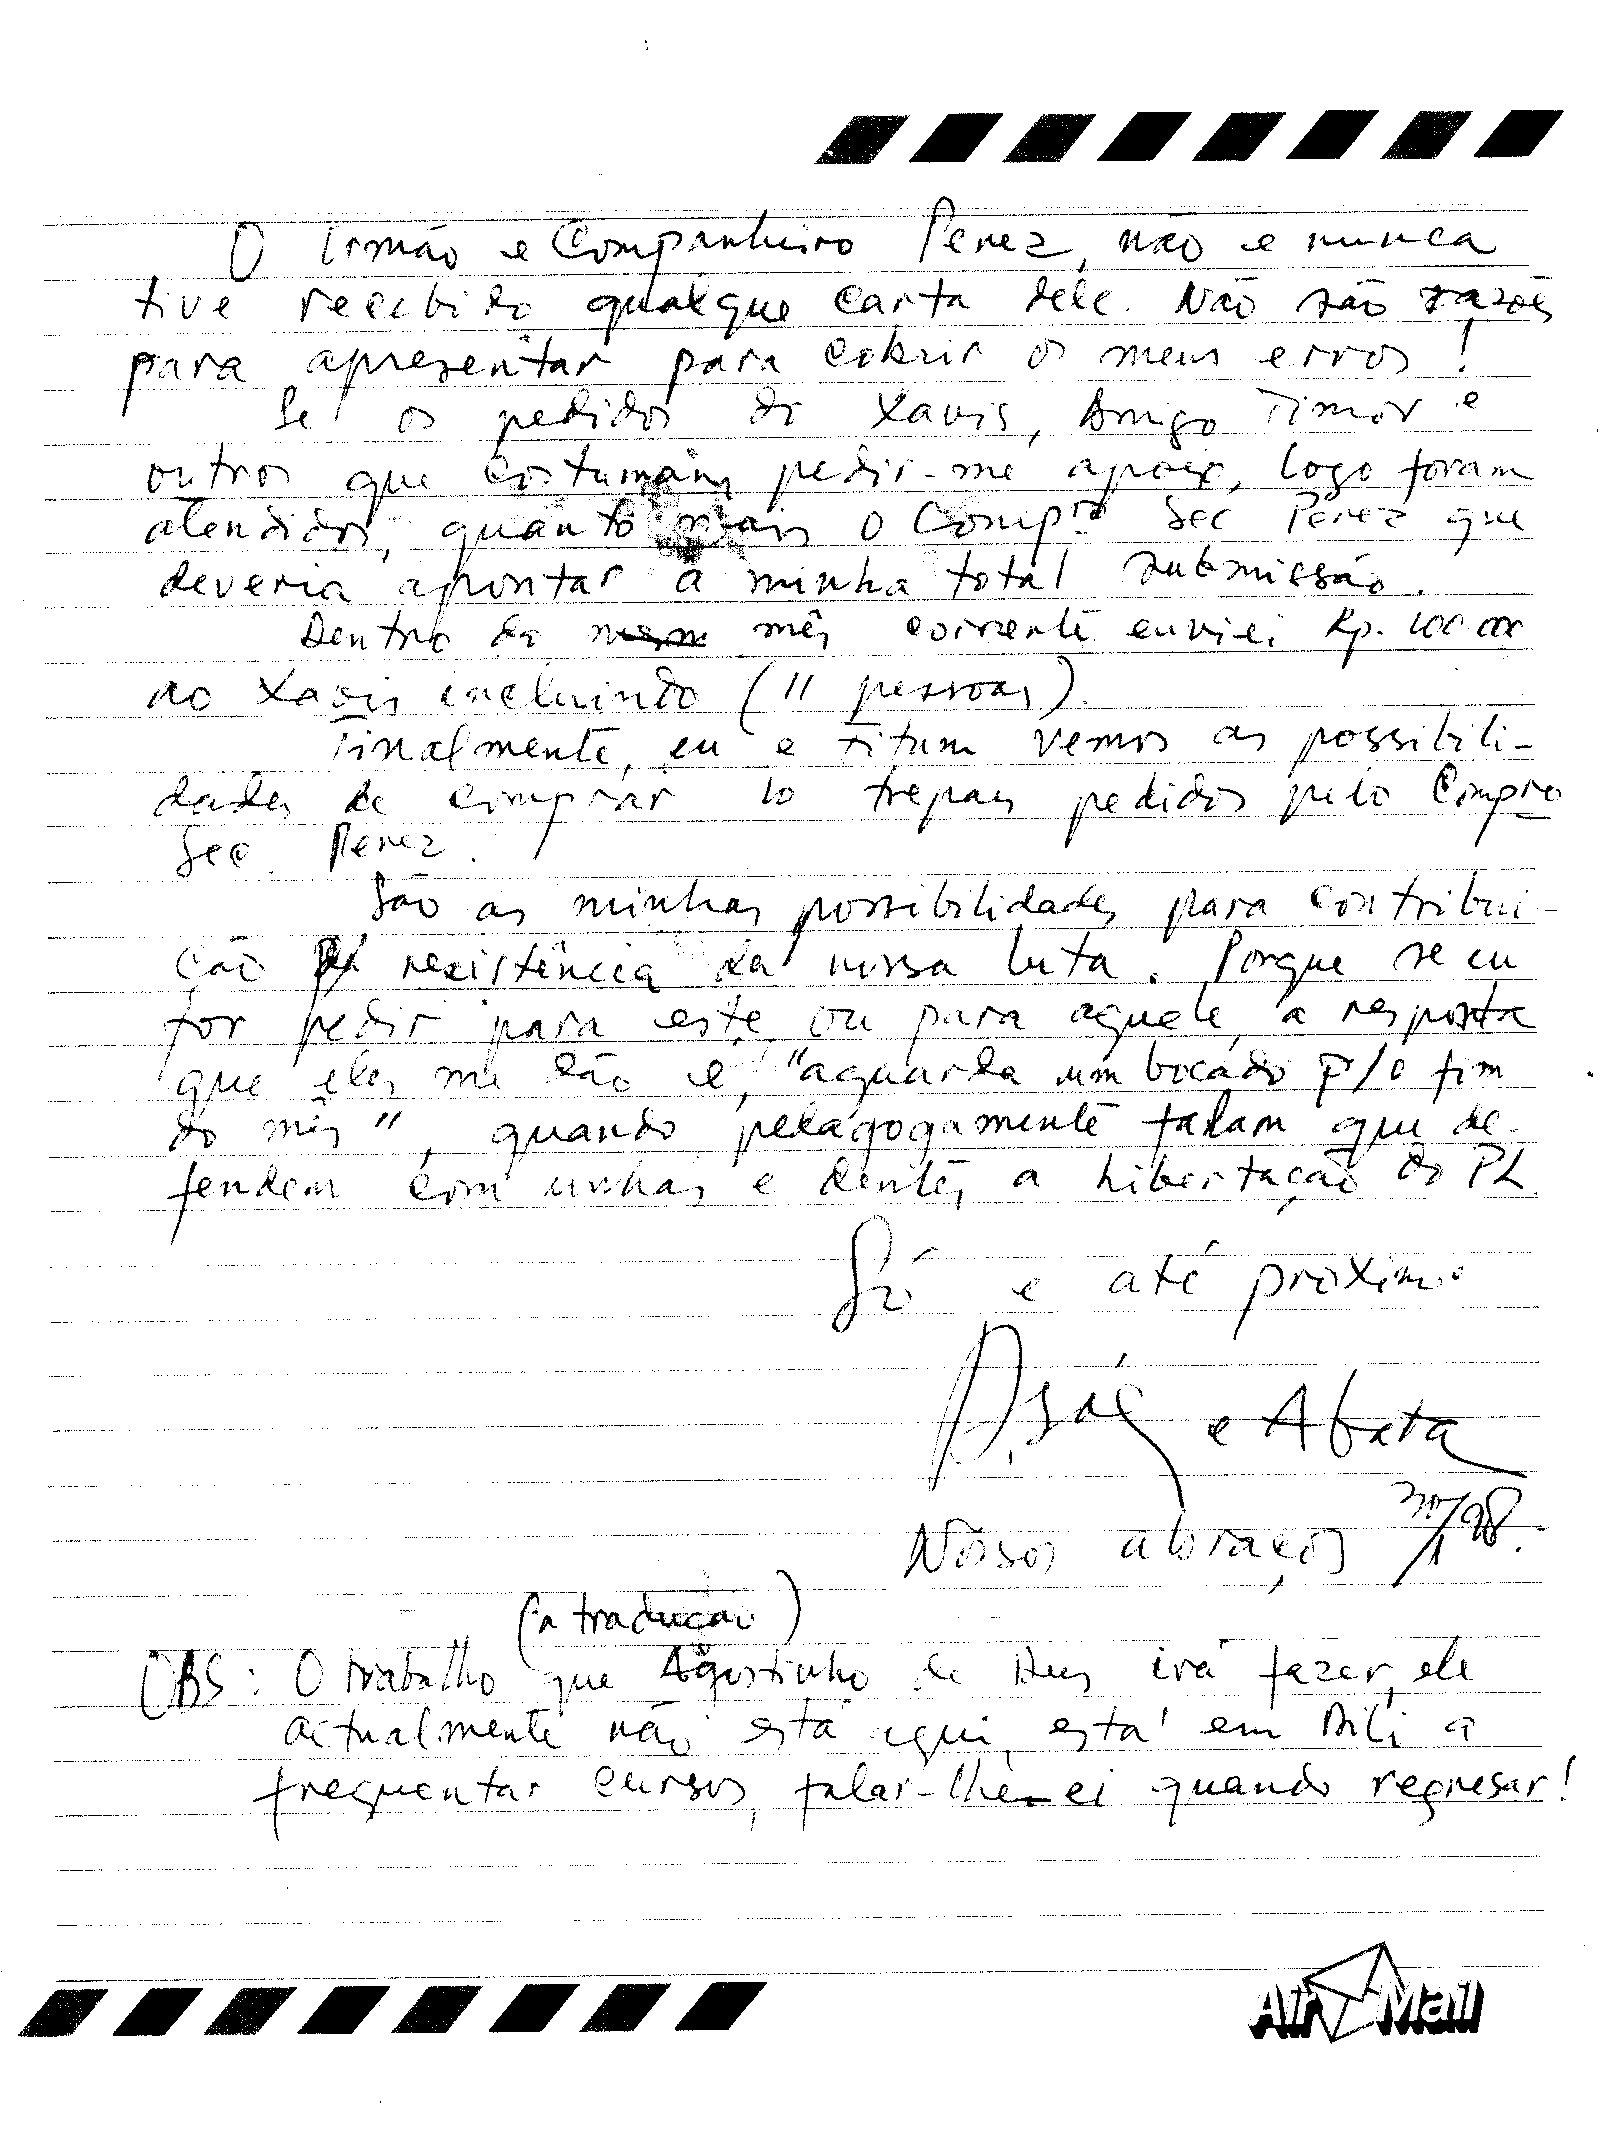 O Irmão e Companheiro Perez, não e nunca
tive recebido qualque carta dele. Não são razões
para apresentar para cobrir os meus erros!
Se os pedidos do Xavis, Amigo Timor e
outros que costumam pedir-me apoix, logo foram
atendidos, quanto mais o Compro Sec Perez que
deveria apontar a minha total submissão.
Dentro do mês corrente enviei Rp. 100.000
ao Xavis incluindo (11 pessoas).
Finalmente, eu e Titum vemos as possibili-
dades de comprar 10 trepas pedidos pelo Compro
Sec. Perez.
São as minhas possibilidades para contribui-
ção resistência da nossa luta. Porque se eu
for pedir para este, ou para aquele, a resposta
que eles me dão é, "aguarda um bocado p/o fim
do mês", quando pelagogamente falam que de-
fendem com unhas e dentes a libertação do PL.
Só e até próximo
e Afeta
Nossos abraços 30/1/98.
(a tradução)
OBS: O trabalho que Agostinho de Deus irá fazer, ele
actualmente não está aqui, está em Dili a
frequentar cursos, falar-lhe-ei quando regresar!
Air Mail